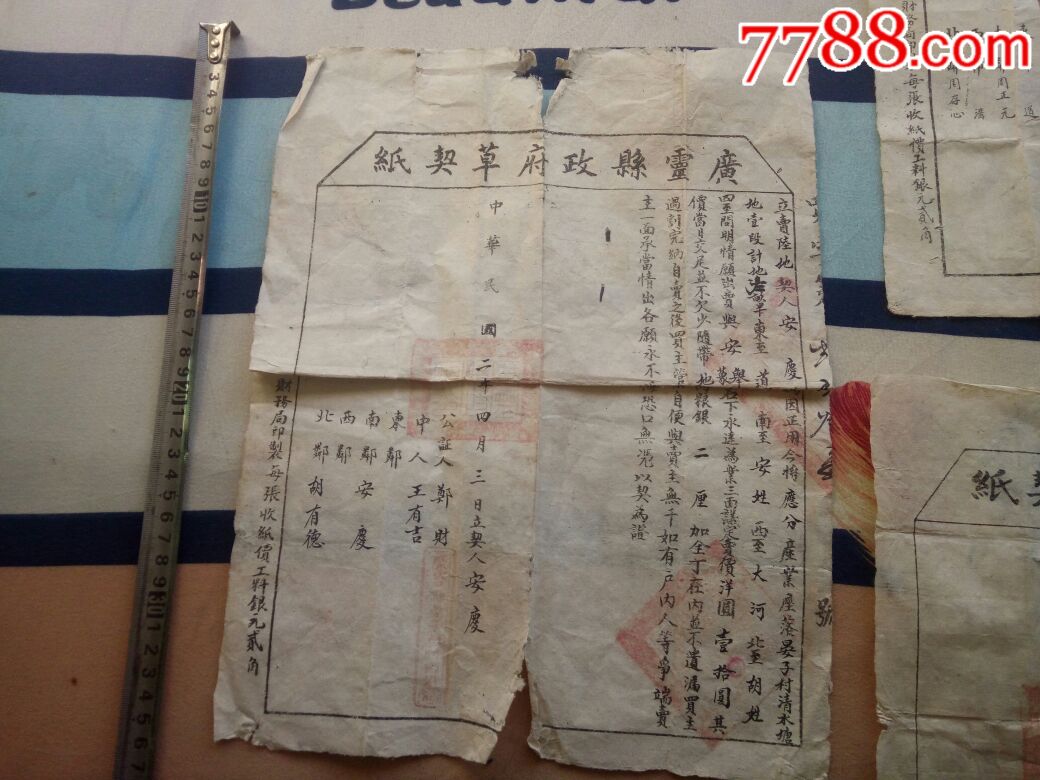 7788.com
廣靈縣政府草契紙
立賣陸地契人安慶因正用今將應分產業座落晏子村清水塘
地壹段計地 畝半東至道南至安姓西至大河北至胡姓
四至開明情願出賣與安舉蒙名下永遠為業三面議定賣價洋圓壹拾圓其
價當日交足並不欠少隨帶地糧銀二厘加全丁在內並不遺漏買主
過割完納自賣之後買主管自便與賣主無干如有戶內人等爭端賣
主一面承當情出各願永不 恐口無憑以契為證
中華民國二年四月三日立契人安慶
公証人鄭財
中人王有吉
東鄰
南鄰安慶
西鄰
北鄰胡有德
財務局印製每張收紙價工料銀元貳角
號
財務局 每張收紙價工料銀元貳角
契紙